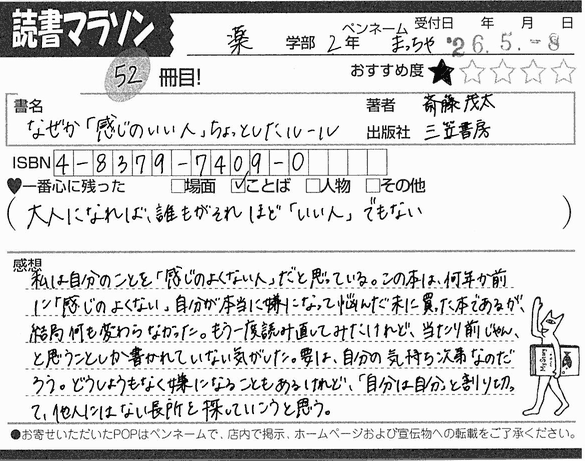 読書マラソン
薬 学部 2年 ペンネーム まっちゃ 受付日 年 月 日 '26.5.-8
52 冊目! おすすめ度 ★☆☆☆☆
書名 なぜか「感じのいい人」ちょっとしたルール
著者 斎藤茂太
出版社 三笠書房
ISBN 4-8379-7409-0
♥一番心に残った □場面 ☑ことば □人物 □その他
(大人になれば、誰もがそれほど「いい人」でもない)
感想
私は自分のことを「感じのよくない人」だと思っている。この本は、何年か前
に「感じのよくない」自分が本当に嫌になって悩んだ末に買った本であるが、
結局何も変わらなかった。もう一度読み直してみたけれど、当たり前じゃん、
と思うことしか書かれていない気がした。要は、自分の気持ち次第なのだ
ろう。どうしようもなく嫌になることもあるけれど、「自分は自分」と割り切っ
て、他人にはない長所を探していこうと思う。
●お寄せいただいたPOPはペンネームで、店内で掲示、ホームページおよび宣伝物への転載をご了承ください。